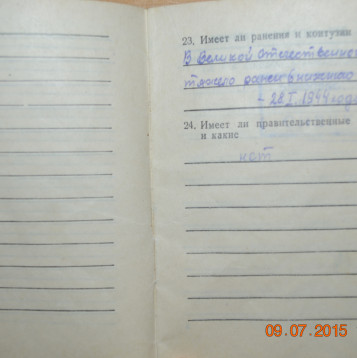 23. Имеет ли ранения и контузии
В Великой Отечественной
тяжело ранен в нижнего
- 28 I. 1944 года
24. Имеет ли правительственные
и какие
нет
09.07.2015